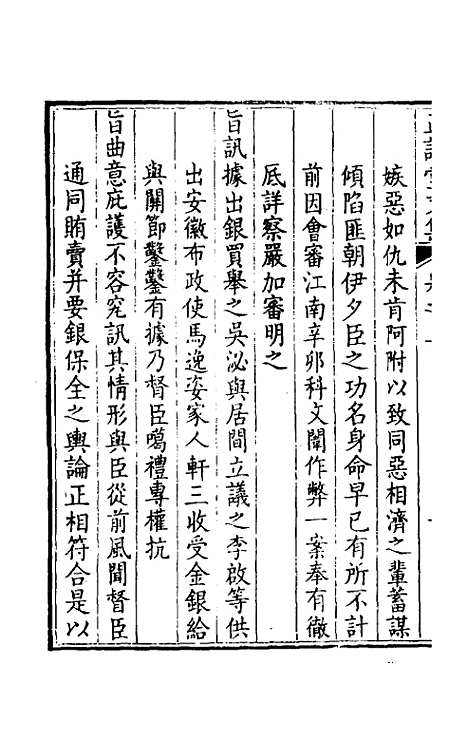 正誼堂文集
嫉惡如仇未肯阿附以致同惡相濟之輩蓄謀
傾陷匪朝伊夕臣之功名身命早已有所不計
前因會審江南辛卯科文闈作弊一案奉有徹
底詳察嚴加審明之
旨訊據出銀買舉之吳泌與居間立議之李啟等供
出安徽布政使馬逸姿家人軒三收受金銀給
與關節鑿鑿有據乃督臣噶禮專權抗
旨曲意庇護不容究訊其情形與臣從前風聞督臣
通同賄賣并要銀保全之輿論正相符合是以